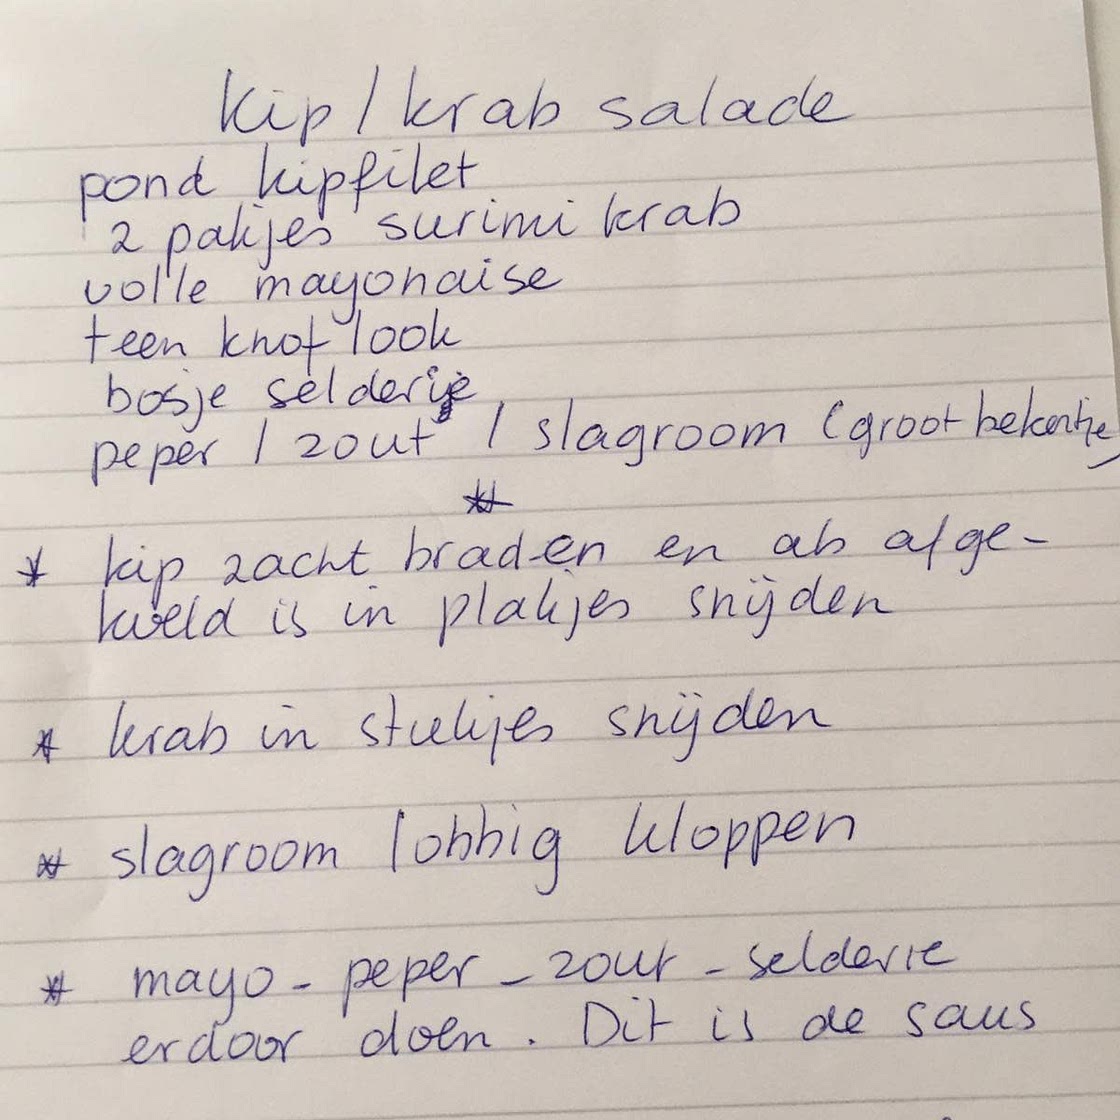 kip / krab salade
pond kipfilet
2 pakjes surimi krab
volle mayonaise
teen knoflook
bosje selderie
peper / zout / slagroom (groot bekertje)
*
* kip zacht braden en als afge-
koeld is in plakjes snijden
* krab in stukjes snijden
* slagroom lobbig kloppen
* mayo - peper - zout - selderie
erdoor doen. Dit is de saus